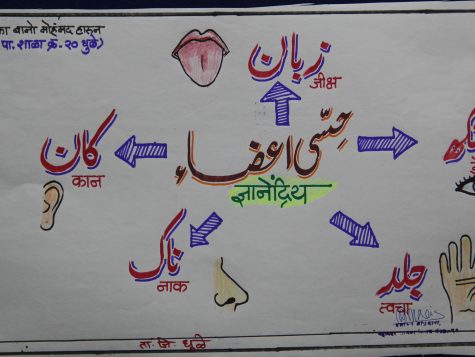 का बानो मोहंमद हारुन
पा. शाळा क्र-२० धुळे)
زبان
जीभ
حِسّی اعضاء
ज्ञानेंद्रिय
کان
कान
ناک
नाक
جلد
त्वचा
ता. जि. धुळे